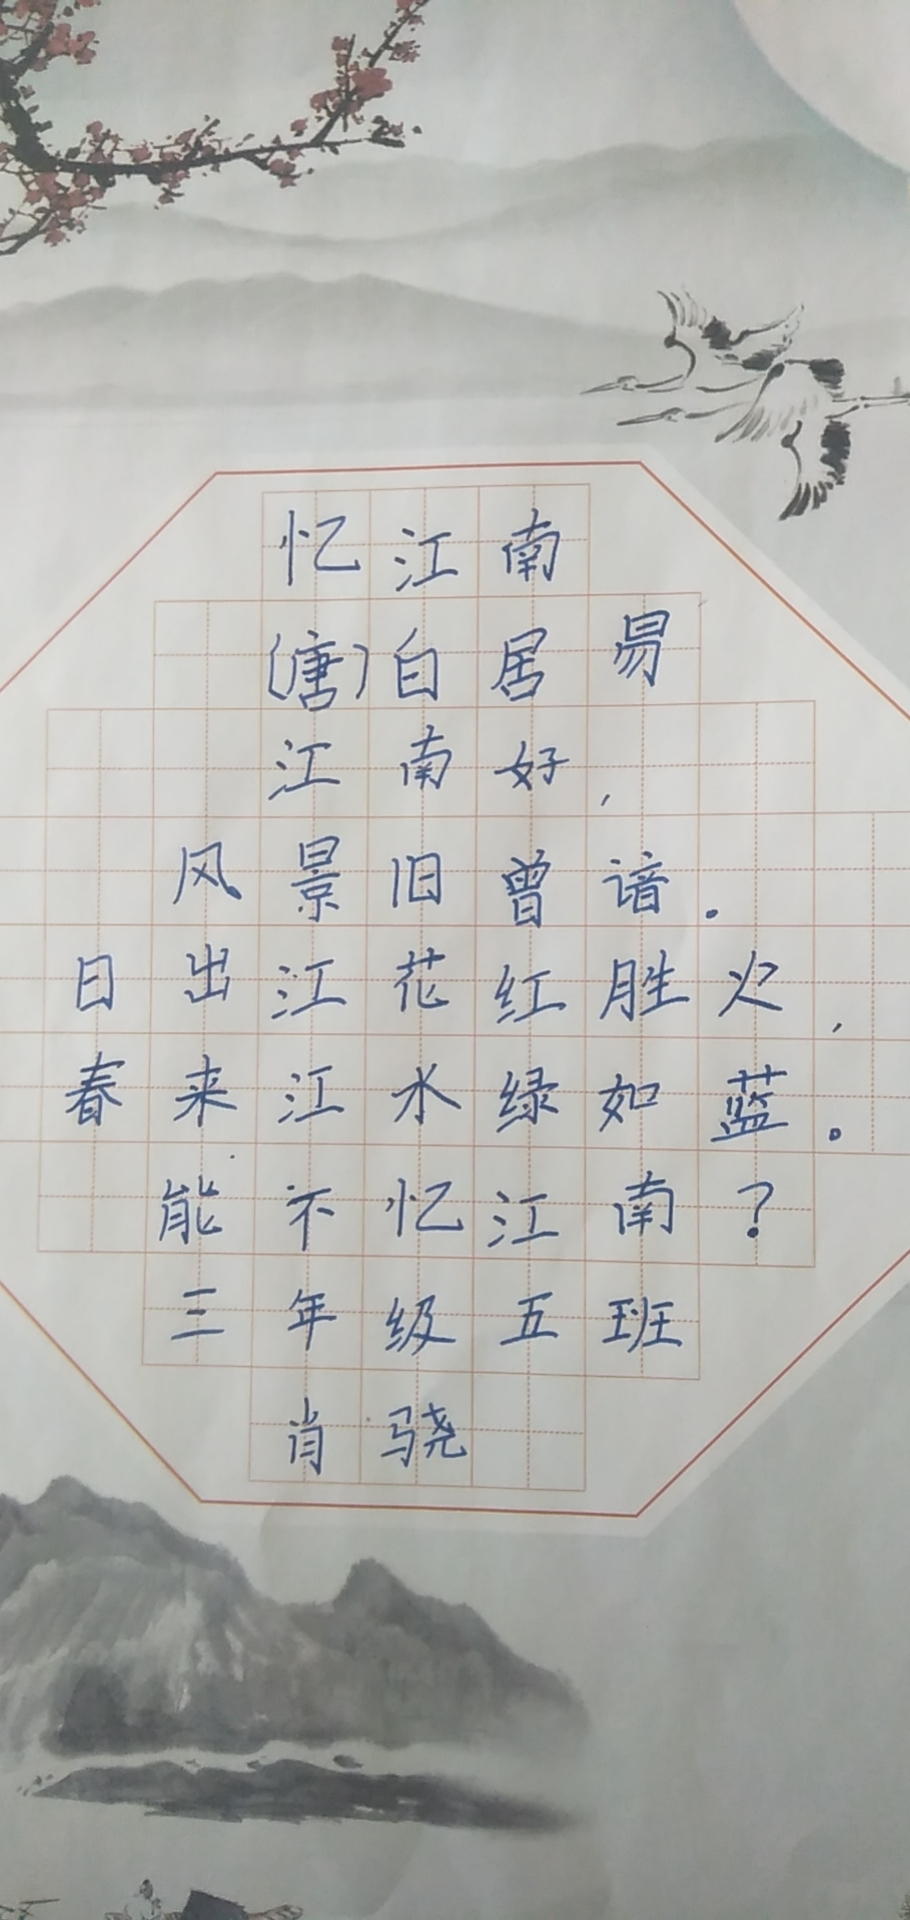 忆江南
(唐)白居易
江南好,
风景旧曾谙。
日出江花红胜火,
春来江水绿如蓝。
能不忆江南?
三年级五班
肖骁